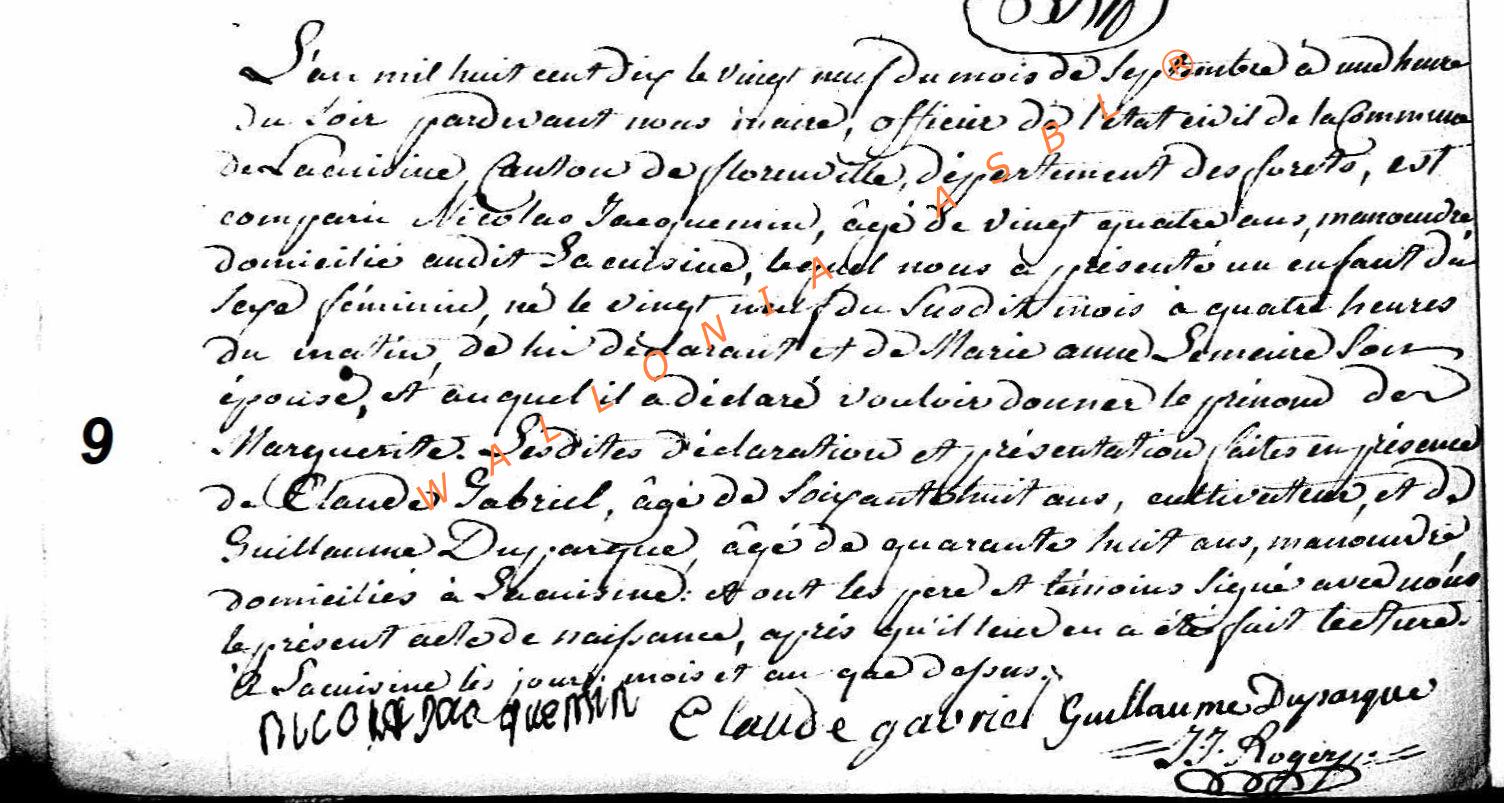 L'an mil huit cent dix le vingt neuf du mois de Septembre à une heure
du soir pardevant nous maire, officier de l'état civil de la Commune
de Lacuisine, Canton de florenville, département des forets, est
comparu Nicolas Jacquemin, âgé de vingt quatre ans, manoeuvre
domicilié audit Lacuisine, lequel nous a présenté un enfant du
sexe féminin, né le vingt neuf du susdit mois à quatre heures
du matin, de lui déclarant et de Marie anne Lemaire son
épouse, et auquel il a déclaré vouloir donner le prénom de
Marguerite. Lesdites déclaration et présentation faites en présence
9
de Claude Gabriel, âgé de soixante huit ans, cultivateur, et de
Guillaume Duparque, âgé de quarante huit ans, manoeuvre
domiciliés à Lacuisine: et ont les pere et témoins signé avec nous
le présent acte de naissance, après qu'il leur en a été fait lecture.
à Lacuisine les jour, mois et an que dessus.
NICOLAS JACQUEMIN Claude gabriel Guillaume Duparque
J.J. Roger
WALLONIA ASBL ®